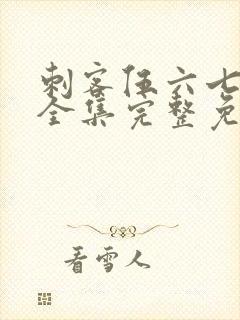 刺客伍六七
全集完整免
看雪人